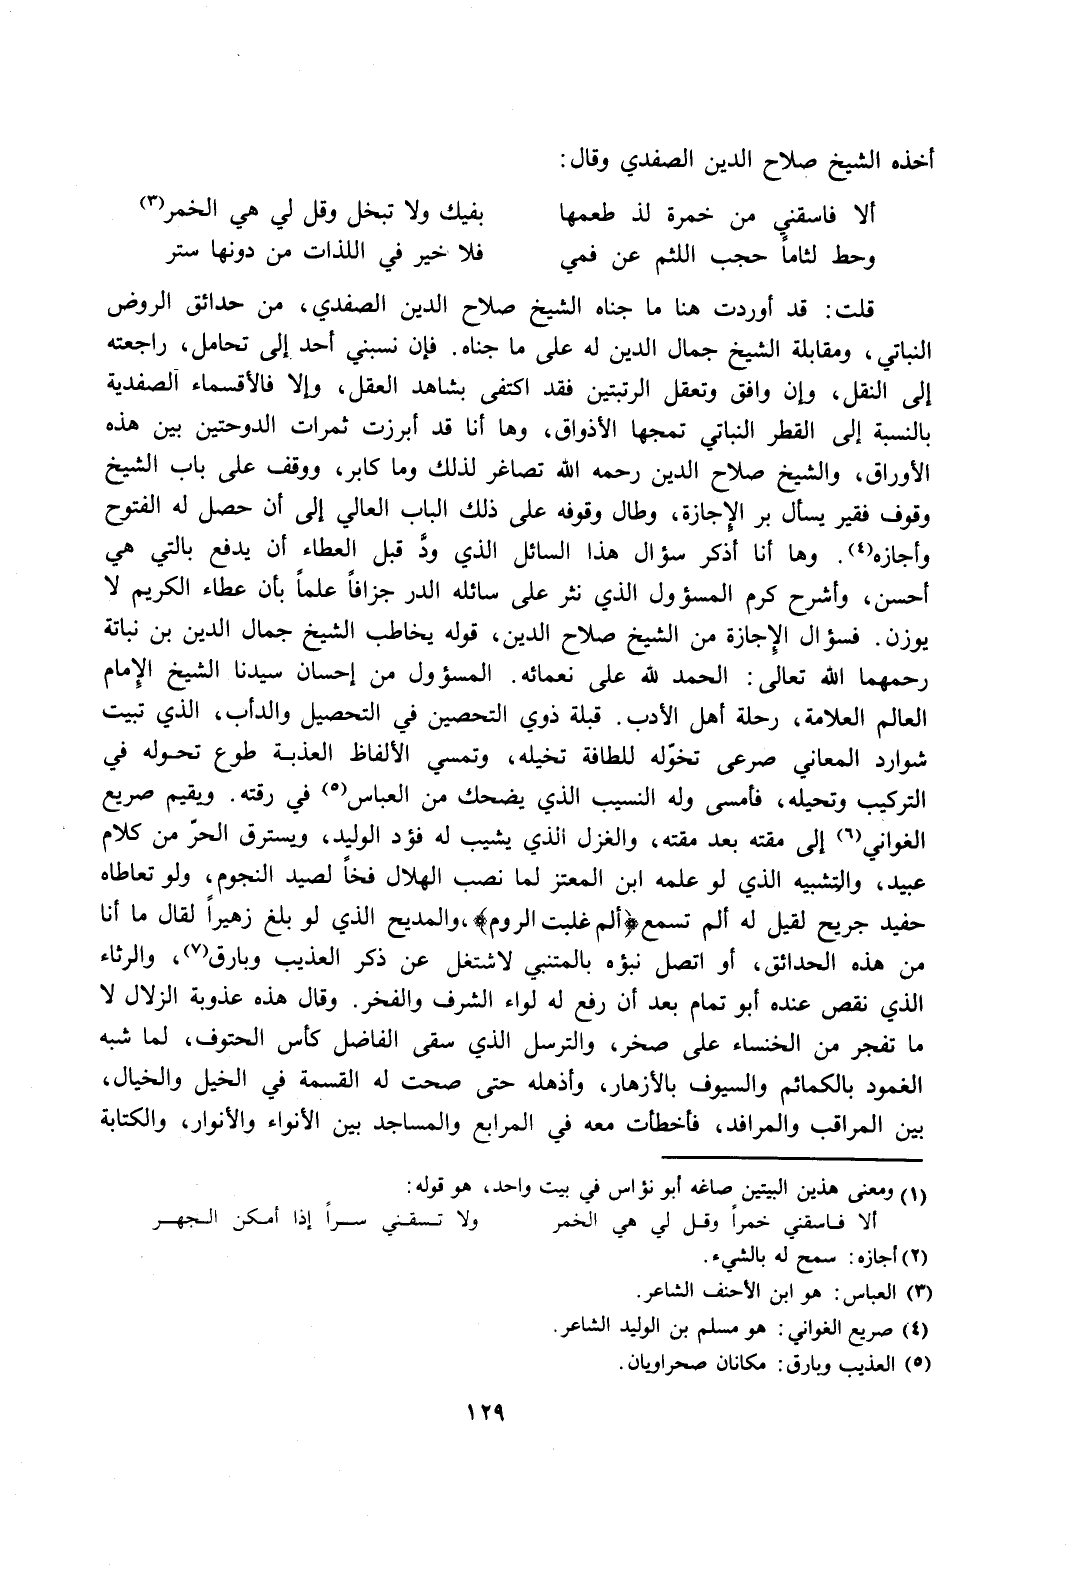 أخذه الشيخ صلاح الدين الصفدي وقال:
ألا فاسقني من خمرة لذ طعمها بفيك ولا تبخل وقل لي هي الخمر(٣)
وحط لثاماً حجب اللثم عن فمي فلا خير في اللذات من دونها ستر
قلت: قد أوردت هنا ما جناه الشيخ صلاح الدين الصفدي، من حدائق الروض
النباتي، ومقابلة الشيخ جمال الدين له على ما جناه. فإن نسبني أحد إلى تحامل، راجعته
إلى النقل، وإن وافق وتعقل الرتبتين فقد اكتفى بشاهد العقل، وإلا فالأقسماء الصفدية
بالنسبة إلى القطر النباتي تمجها الأذواق، وها أنا قد أبرزت ثمرات الدوحتين بين هذه
الأوراق، والشيخ صلاح الدين رحمه الله تصاغر لذلك وما كابر، ووقف على باب الشيخ
وقوف فقير يسأل بر الإجازة، وطال وقوفه على ذلك الباب العالي إلى أن حصل له الفتوح
وأجازه(٤). وها أنا أذكر سؤال هذا السائل الذي ودَّ قبل العطاء أن يدفع بالتي هي
أحسن، وأشرح كرم المسؤول الذي نثر على سائله الدر جزافاً علماً بأن عطاء الكريم لا
يوزن. فسؤال الإجازة من الشيخ صلاح الدين، قوله يخاطب الشيخ جمال الدين بن نباتة
رحمهما الله تعالى: الحمد لله على نعمائه. المسؤول من إحسان سيدنا الشيخ الإمام
العالم العلامة، رحلة أهل الأدب. قبلة ذوي التحصين في التحصيل والدأب، الذي تبيت
شوارد المعاني صرعى تخوّله للطافة تخيله، وتمسي الألفاظ العذبة طوع تحوله في
التركيب وتحيله، فأمسى وله النسيب الذي يضحك من العباس(٥) في رقته. ويقيم صريع
الغواني(٦) إلى مقته بعد مقته، والغزل الذي يشيب له فؤد الوليد، ويسترق الحرّ من كلام
عبيد، والتشبيه الذي لو علمه ابن المعتز لما نصب الهلال فخاً لصيد النجوم، ولو تعاطاه
حفيد جريح لقيل له ألم تسمع﴿ألم غلبت الروم﴾،والمديح الذي لو بلغ زهيراً لقال ما أنا
من هذه الحدائق، أو اتصل نبؤه بالمتنبي لاشتغل عن ذكر العذيب وبارق(٧)، والرثاء
الذي نقص عنده أبو تمام بعد أن رفع له لواء الشرف والفخر. وقال هذه عذوبة الزلال لا
ما تفجر من الخنساء على صخر، والترسل الذي سقى الفاضل كأس الحتوف، لما شبه
الغمود بالكمائم والسيوف بالأزهار، وأذهله حتى صحت له القسمة في الخيل والخيال،
بين المراقب والمرافد، فأخطأت معه في المرابع والمساجد بين الأنواء والأنوار، والكتابة
(١) ومعنى هذين البيتين صاغه أبو نؤاس في بيت واحد، هو قوله:
ألا فاسقني خمراً وقل لي هي الخمر ولا تسقني سراً إذا أمكن الجهر
(٢) أجازه: سمح له بالشيء.
(٣) العباس: هو ابن الأحنف الشاعر.
(٤) صريع الغواني: هو مسلم بن الوليد الشاعر.
(٥) العذيب وبارق: مكانان صحراويان.
١٢٩